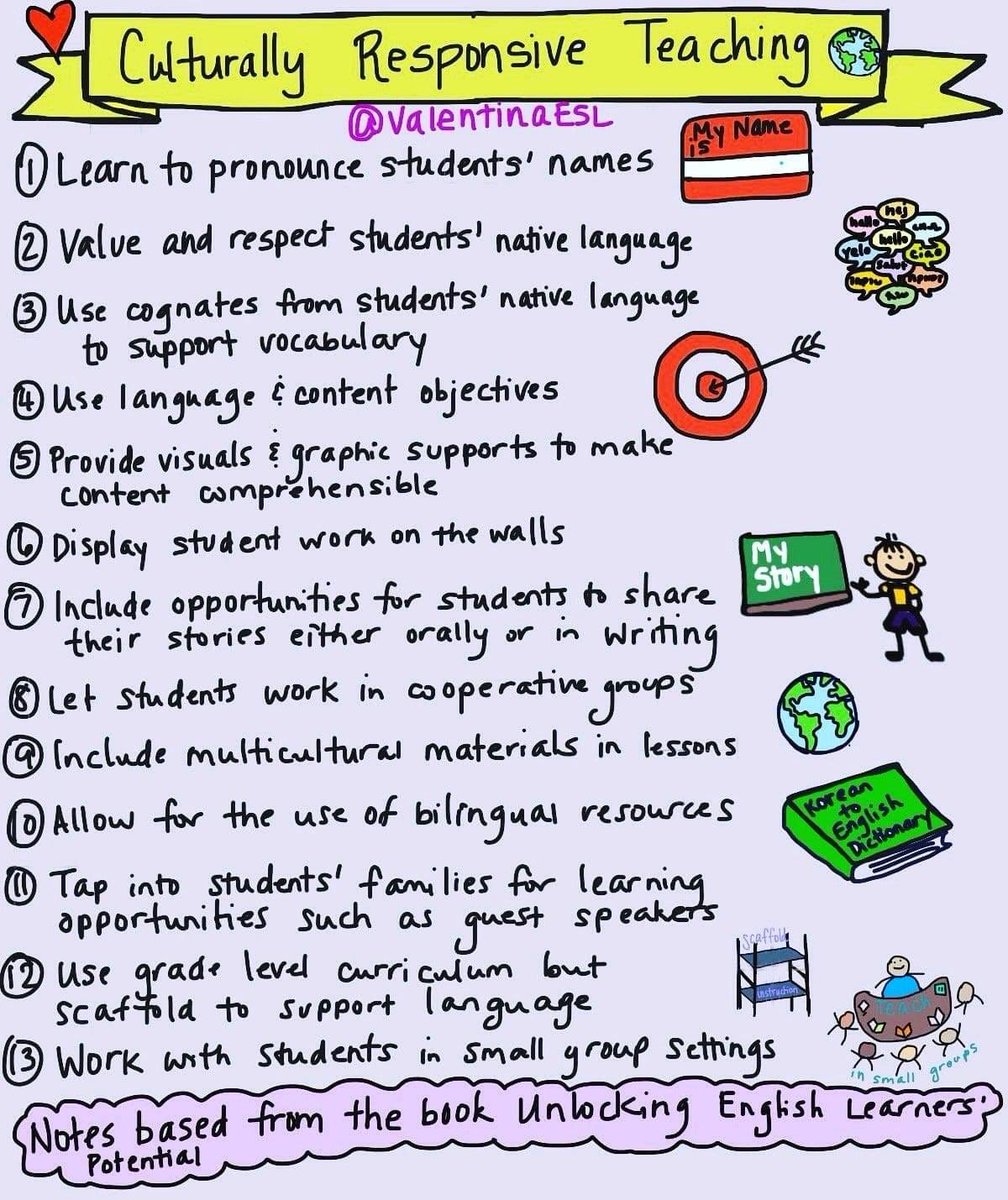 Culturally Responsive Teaching
@ValentinaESL
My Name
is
① Learn to pronounce students' names
② Value and respect students' native language
hej
hallo
hello
yelo
ciao
salut
③ Use cognates from students' native language
to support vocabulary
④ Use language & content objectives
⑤ Provide visuals & graphic supports to make
content comprehensible
⑥ Display student work on the walls
My
Story
⑦ Include opportunities for students to share
their stories either orally or in writing
⑧ Let students work in cooperative groups
⑨ Include multicultural materials in lessons
⑩ Allow for the use of bilingual resources
Korean
to
English
Dictionary
⑪ Tap into students' families for learning
opportunities such as guest speakers
⑫ Use grade level curriculum but
scaffold to support language
scaffold
instruction
⑬ Work with students in small group settings
TEACH
in small groups
Notes based from the book Unlocking English Learners'
Potential